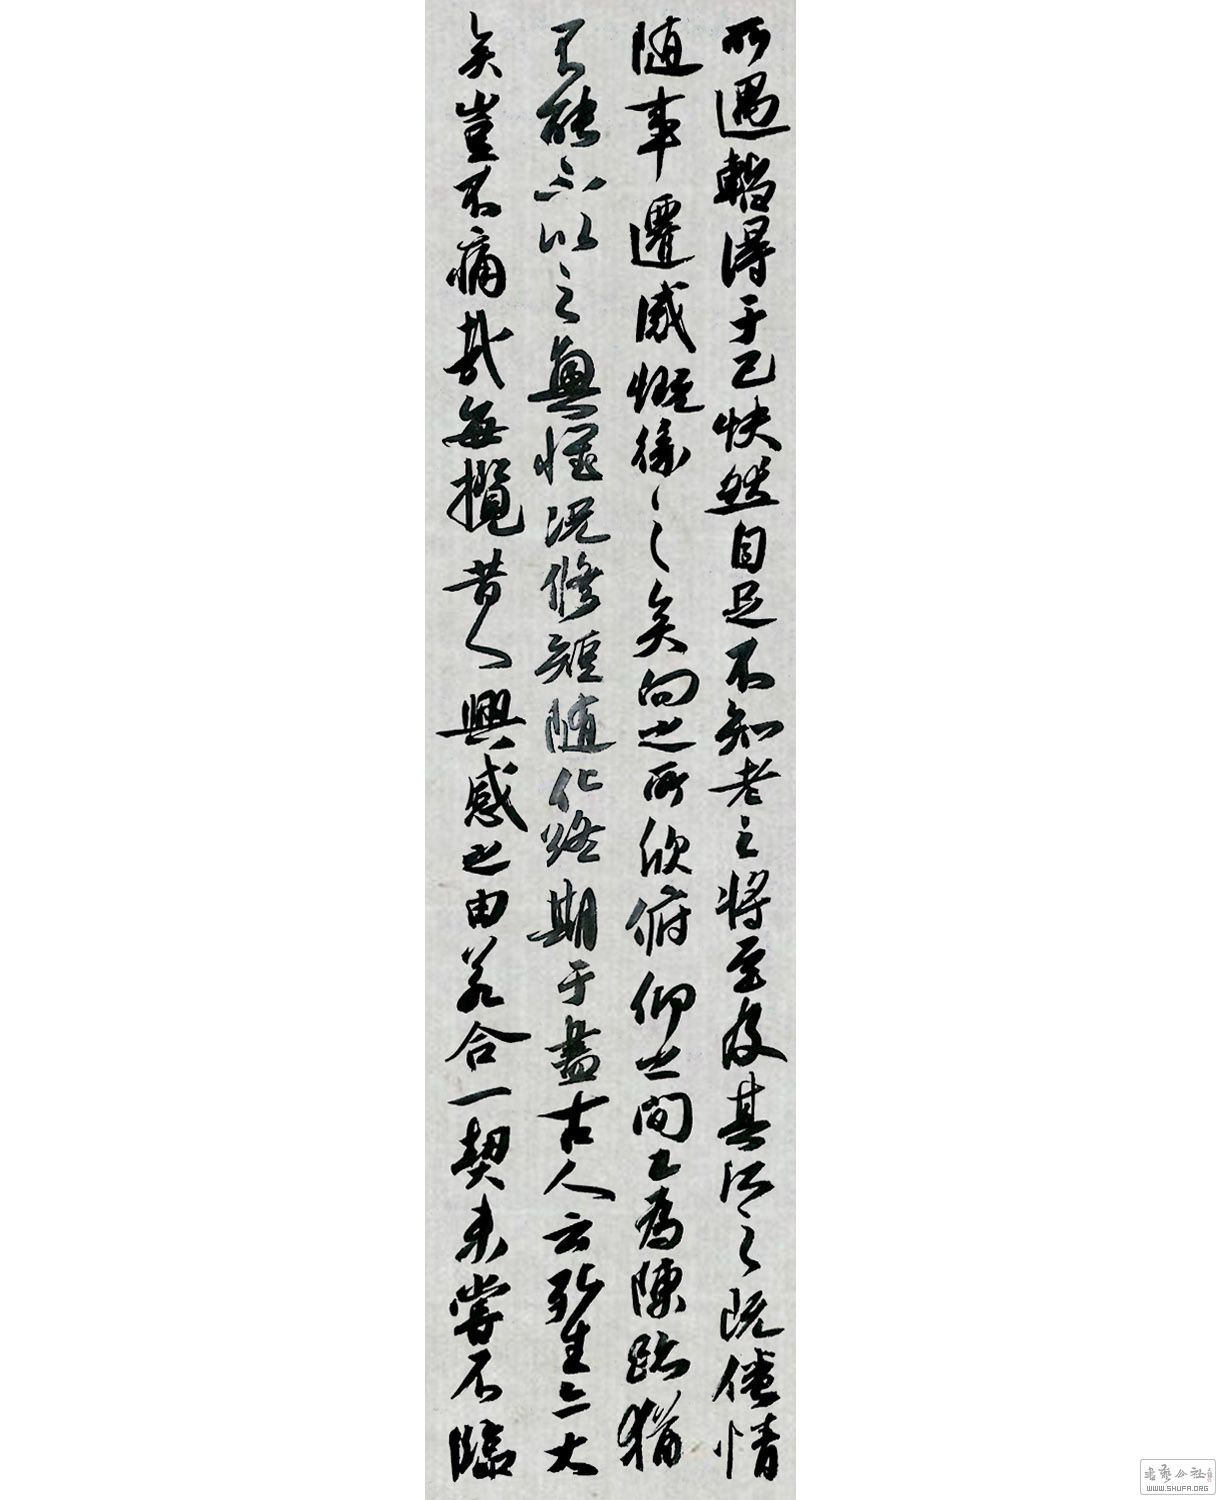 所遇暫得于己快然自足不知老之將至及其所之既倦情
随事遷感慨係之矣向之所欣俯仰之間已為陳跡猶
不能不以之興懷況修短随化終期于盡古人云死生亦大
矣豈不痛哉每攬昔人興感之由若合一契未嘗不臨
WWW.SHUFA.ORG